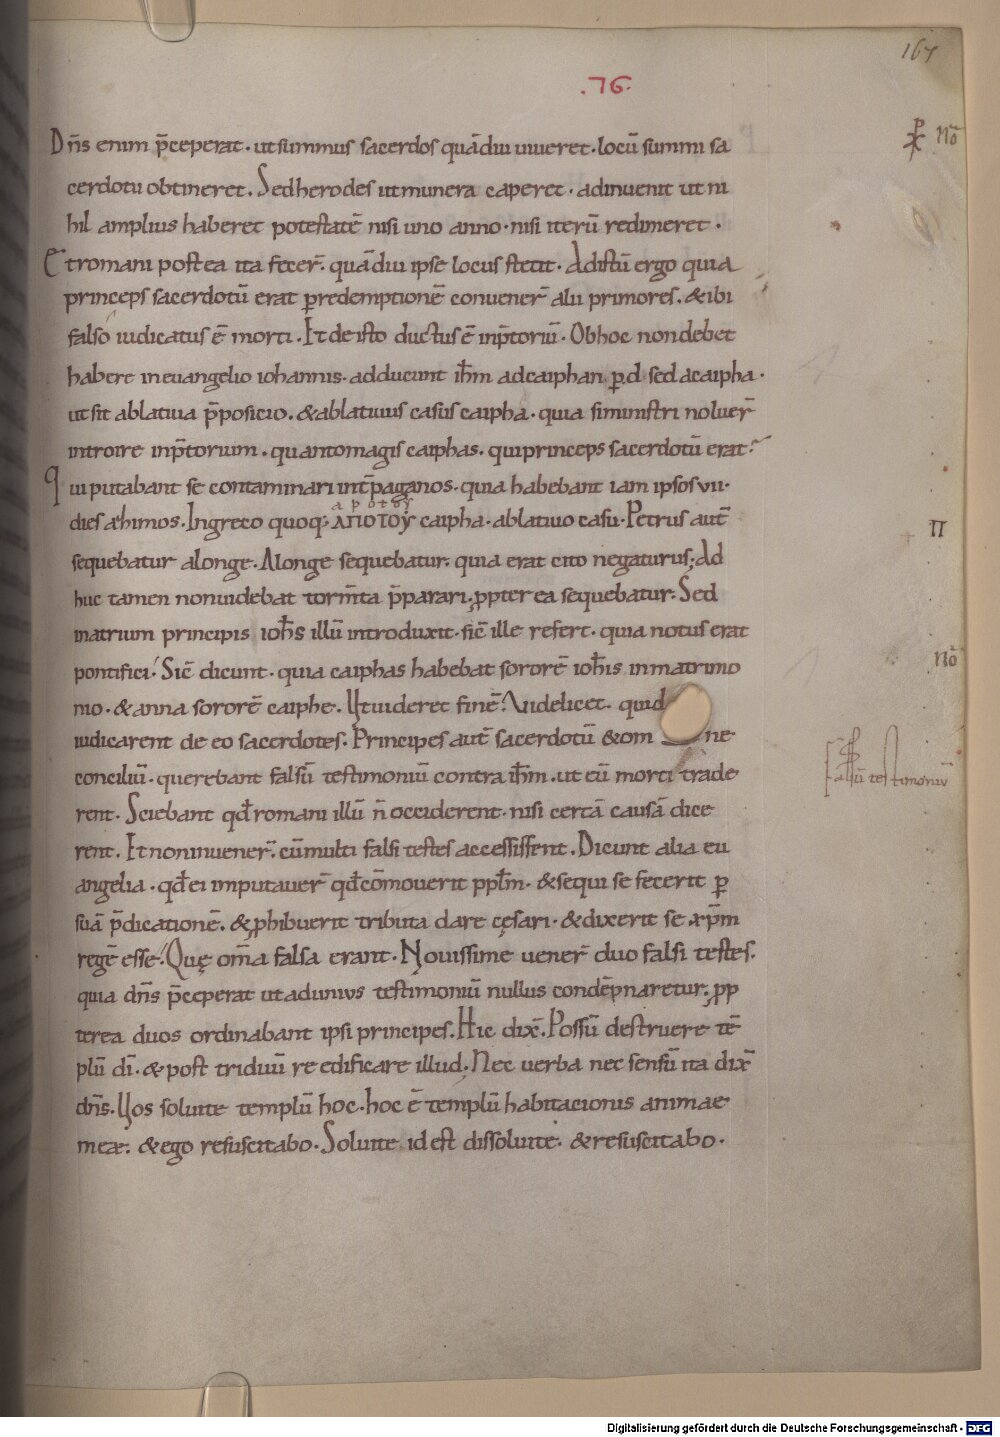 167
.76.
Dn̄s enim p̄ceperat. ut summus sacerdos quādiu uiueret. locū summi sa
cerdotii obtineret. Sed herodes ut munera caperet. adinuenit ut ni
hil amplius haberet potestatē nisi uno anno. nisi iterū redimeret.
Et romani postea ita fecer̄. quādiu ipse locus stetit. Ad istū ergo quia
princeps sacerdotū erat ꝑ redemptionē conuener̄ alii primores. & ibi
falso iudicatus ē morti. Et de isto ductus ē in p̄toriū. Ob hoc non debet
habere in euangelio iohannis. adducunt ih̄m ad caiphan ꝑ d. sed a caipha.
ut sit ablatiua p̄posicio. & ablatiuus casus caipha. quia si ministri noluer̄
introire in p̄torium. quanto magis caiphas. qui princeps sacerdotū erat?
Qui putabant se contaminari int̄ paganos. quia habebant iam ipsos vii.
a p o t o y
dies azhimos. In greco quoq; ΑΠΟΤΟΥ caipha. ablatiuo casu. Petrus aut̄
sequebatur a longe. A longe sequebatur. quia erat cito negaturus; Ad
huc tamen non uidebat torm̄ta p̄parari. ꝓpterea sequebatur. Sed
in atrium principis ioh̄s illū introduxit. sic̄ ille refert. quia notus erat
pontifici. Sic̄ dicunt. quia caiphas habebat sororē ioh̄is in matrimo
nio. & anna sororē caiphe. Ut uideret finē. Videlicet. quid
iudicarent de eo sacerdotes. Principes aut̄ sacerdotū & om ne
conciliū. querebant falsū testimoniū contra ih̄m. ut eū morti trade
rent. Sciebant qd̄ romani illū n̄ occiderent. nisi certā causā dice
rent. Et non inuener̄. cū multi falsi testes accessissent. Dicunt alia eu
angelia. qd̄ ei imputauer̄ qd̄ cōmouerit ppl̄m. & sequi se fecerit ꝑ
suā p̄dicationē. & ꝓhibuerit tributa dare cęsari. & dixerit se xp̄m
regē esse. Quę om̄a falsa erant. Nouissime uener̄ duo falsi testes.
quia dn̄s p̄ceperat ut ad unius testimoniū nullus condēpnaretur. ꝓp
terea duos ordinabant ipsi principes. Hic dix̄. Possū destruere tē
plū dī. & post triduū reedificare illud. Nec uerba nec sensū ita dix̄
dn̄s. Vos soluite templū hoc. hoc ē templū habitacionis animae
meae. & ego resuscitabo. Soluite id est dissoluite. & resuscitabo.
Nō
Π
Nō
falsū testimoniū
Digitalisierung gefördert durch die Deutsche Forschungsgemeinschaft - DFG